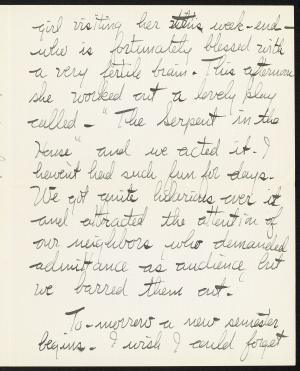 girl visiting her this week-end -
who is fortunately blessed with
a very fertile brain. This afternoon
she worked out a lovely play
called - "The Serpent in the
House" and we acted it. I
haven't had such fun for days.
We got quite hilarious over it
and attracted the attention of
our neighbors, who demanded
admittance as audience, but
we barred them out.
To-morrow a new semester
begins. I wish I could forget